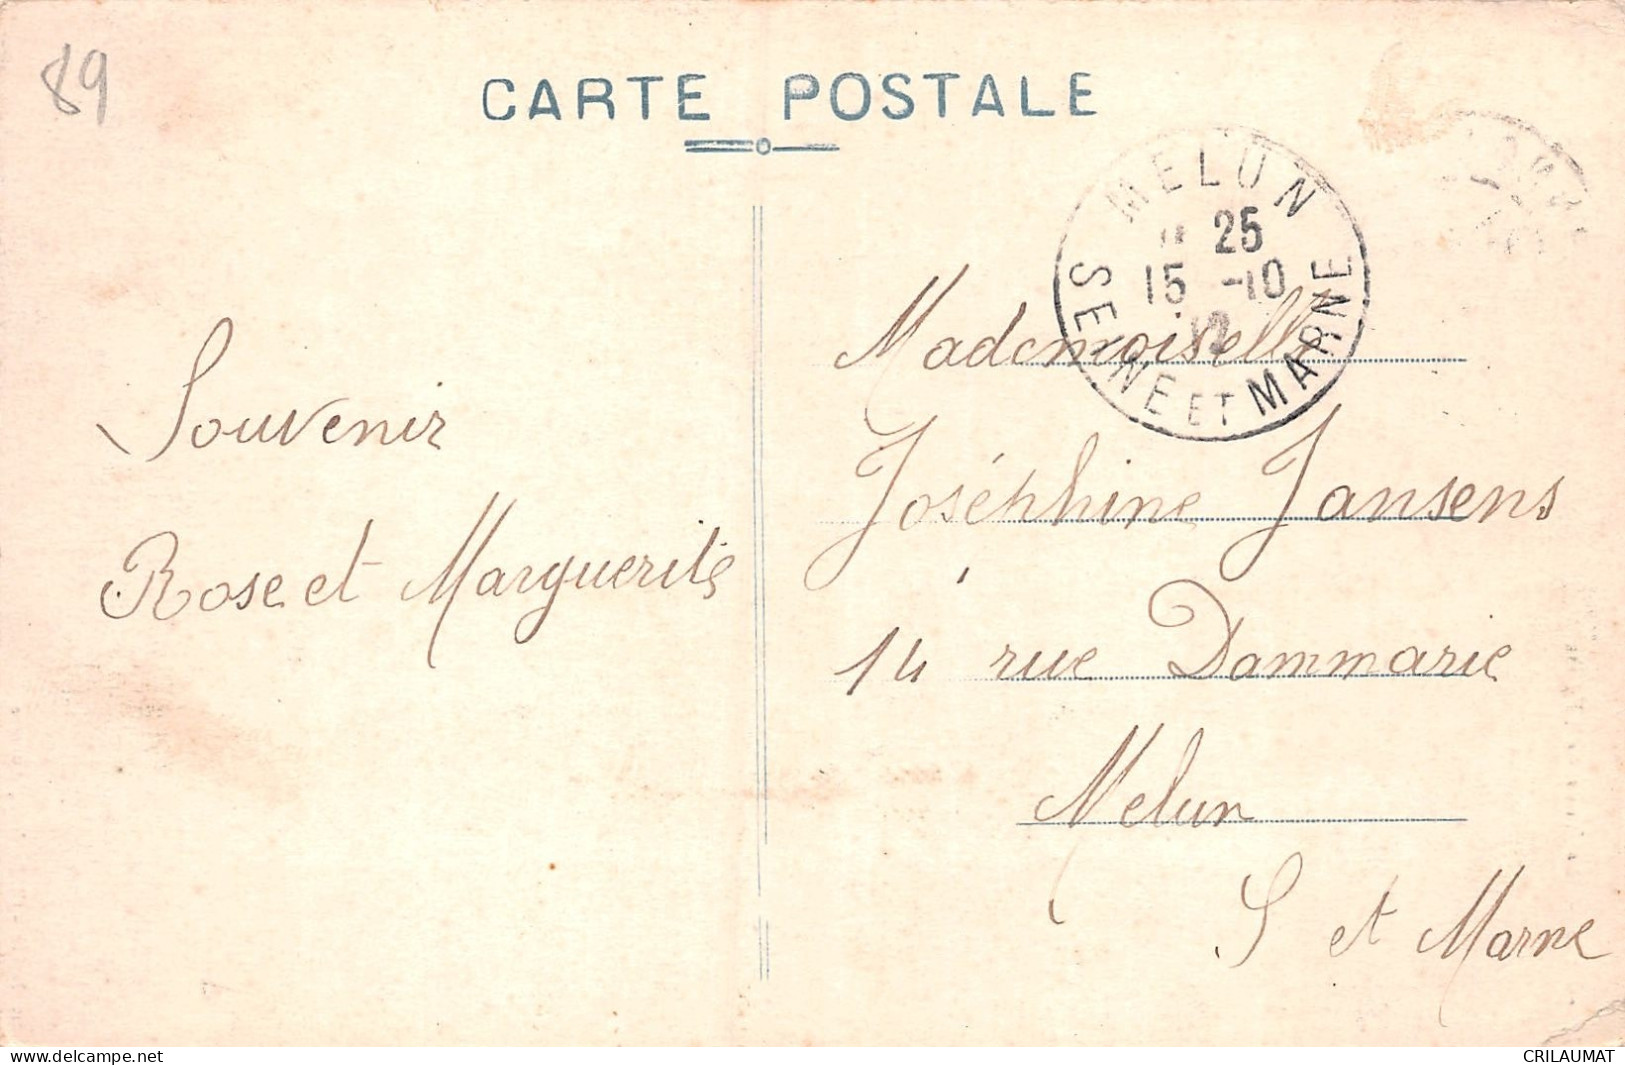 89
CARTE POSTALE
MELUN
11 25
15 -10
12
SEINE ET MARNE
Souvenir
Rose et Marguerite
Mademoiselle
Joséphine Jansens
14 rue Dammarie
Melun
S et Marne
www.delcampe.net
CRILAUMAT